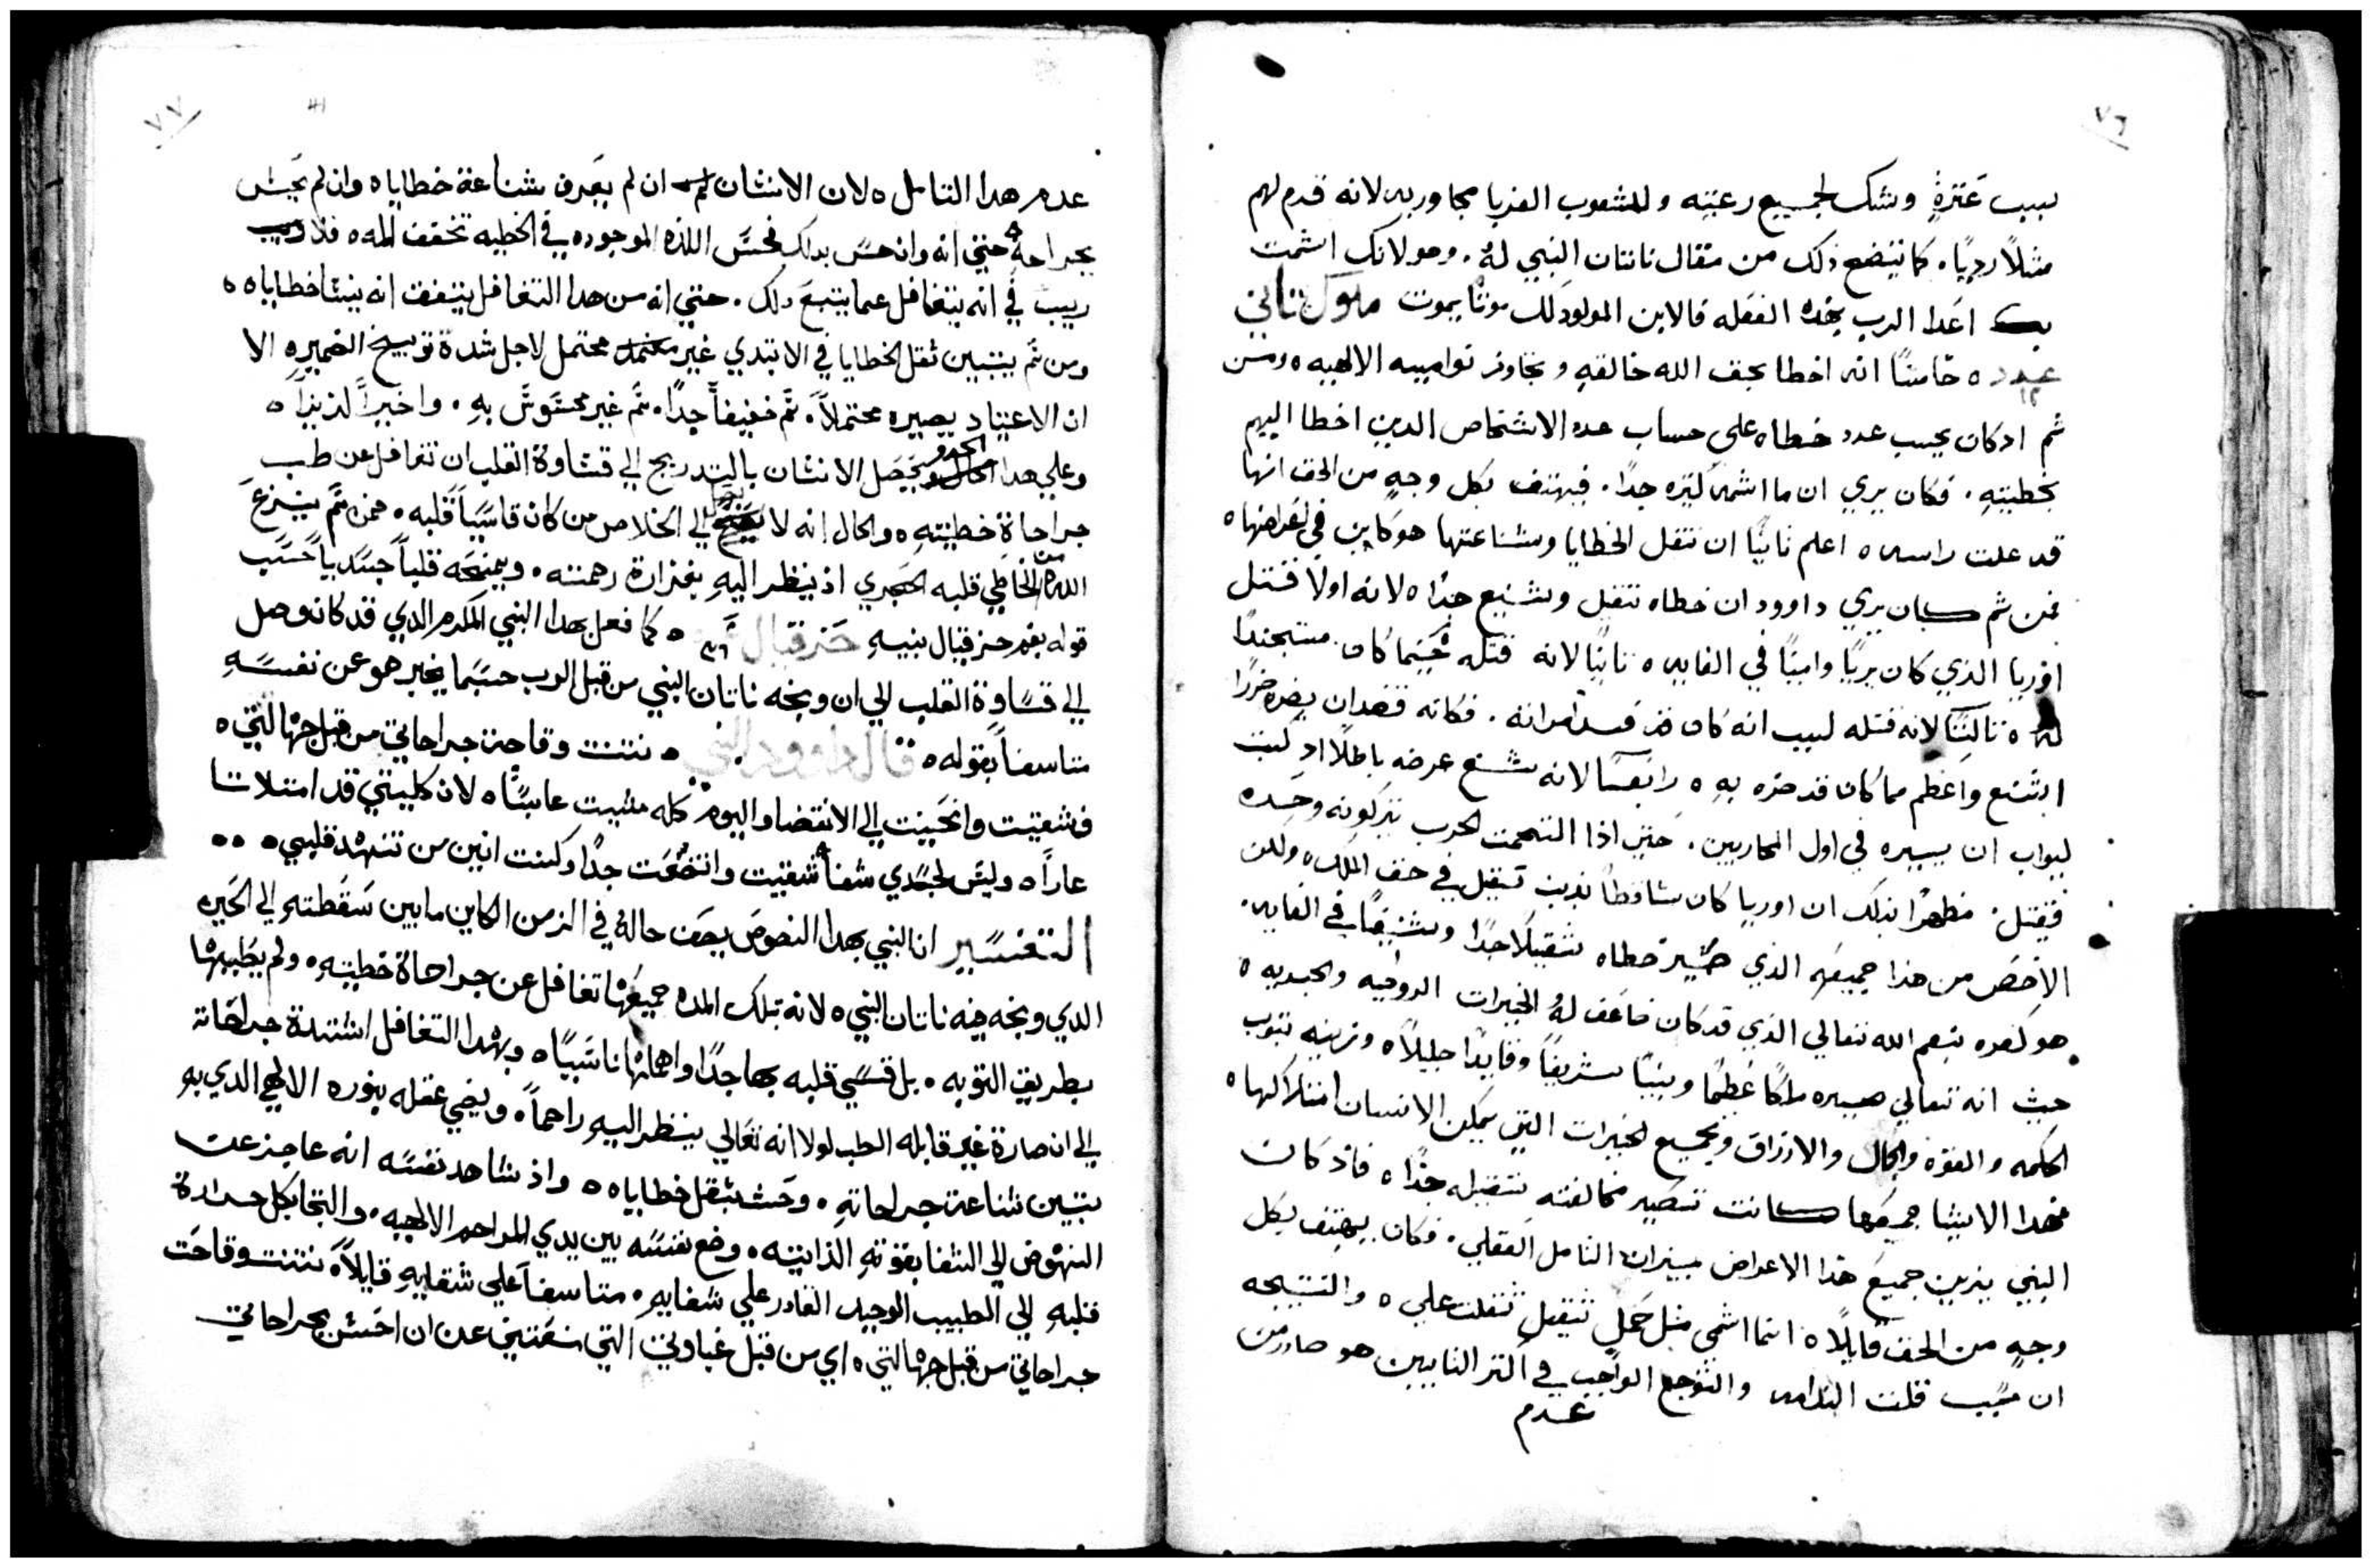 ٧٦
لسبب عترةٍ وشك لجميع رعيته وللشعوب الغربا مجاوريه لانه قدم لهم
مثلاً رديًا. كما يتضح ذلك من مقال ناتان النبي لهُ. وهو لانك اشمت
بك اعدا الرب بهذه الفعله فالابن المولود لك موتًا يموت ملوك تاني
١٢ خامسًا انه اخطا بحق الله خالقهِ وتجاوز نواميسه الالهيه ه ومن
ثم اذ كان يحسب عدد خطاه علي حساب عدد الاشخاص الدين اخطا اليهم
بخطيتهِ. فكان يري ان ما اشمه كتره جدًا. فيهتف بكل وجهٍ من الحق انها
قد علت راسه ه اعلم تانيًا ان تقل الخطايا وشناعتها هو كاين في اعراضها ه
فمن ثم كان يري داوود ان خطاه تقيل وشنيع جدًا ه لانه اولاً قتل
اوريا الذي كان بريًا وامينًا في الغايه ه تانيًا لانه قتله حينما كان متجندًا
له ه تالتًا لانه قتله لسبب انه كان قد فسد امراته. فكانه قصد ان يضره ضررًا
اشنع واعظم مما كان قد ضره بهِ ه رابعًا لانه شنع عرضه باطلاً اذ كتب
ليواب ان يسيره في اول المحاربين. حتي اذا التحمت الحرب يتركونه وحده
فيقتل. مظهرًا بذلك ان اوريا كان ساقطًا بذنب تقيل في حق الملك ه ولكن
الاخص من هذا جميعه الذي صيّر خطاه تقيلاً جدًا وشنيعًا في الغايه.
هو كفره بنعم الله تعالي الذي قد كان ضاعف لهُ الخيرات الروحيه والجسديه ه
حيث انه تعالي صيره ملكًا عظيمًا ونبيًا شريفًا وقايدًا جليلاً ه وزينه بتوب
الحكمه والقوه والجمال والارزاق وبجميع الخيرات التي يمكن الانسان امتلاكها ه
فهدا الاشيا جميعها كانت تصير مخالفته تقيله جدًا ه فاذ كان
النبي يزين جميع هذا الاعراض بميزان التامل العقلي. وكان يهتف بكل
وجهٍ من الحق قايلاً ه انما اتمي مثل حمل تقيل تقلت علي ه والنتيجه
ان سبب قلت الندامه والتوجع الواجب في اكتر التايبين هو صادر من
عدم
٧٧
عدم هدا التامل ه لان الانسان ان لم يعرف شناعة خطاياه وان لم يحس
بجراحهِ حتي انه وان حسّ بدلك فحسّ اللذه الموجوده في الخطيه تخفف المه ه فلا
ريب في انه يتغافل عما يتبع دلك. حتي انه من هدا التغافل يتفق انه ينسا خطاياه ه
ومن ثم يتبين ثقل الخطايا في الابتدي غير محتمل لاجل شدة توبيخ الضميره الا
ان الاعتياد يصيره محتملاً. ثم خفيفاً جدًا. ثم غير محسّوسّ بهِ. واخيراً لذيذاً ه
وعلي هدا الحدو يحصل الانسان بالتدريج الي قساوة القلب ان تغافل عن طب
جراحاة خطيتهِ ه والحال انه لا يصل الي الخلاص من كان قاسيًا قلبه. فمن ثم ينزع
الله من الخاطي قلبه الحجري اذ ينظر اليهِ بغزارة رحمته. ويمنحه قلباً جسدياً حسب
قوله بفم حزقيال نبيهِ حزقيال ٣٦ ه كما فعل بهدا النبي المكرم الدي قد كان وصل
الي قساوة القلب الي ان وبخه ناتان النبي من قبل الرب حسبما يخبر هو عن نفسه
متاسفاً بقوله ه قال داوود النبي ه نتنت وقاحت جراحاتي من قبل جهالتي ه
فشقيت وانحنيت الي الانقضا واليوم كله مشيت عابسًا ه لان كليتي قد امتلاتا
عاراً ه وليس لجسدي شفاً شقيت واتضعت جدًا وكنت انين من تنهد قلبي ه ه ه
التفسير ان النبي بهدا النصوص يصف حالهُ في الزمن الكاين ما بين سقطته الي الحين
الدي وبخه فيه ناتان النبي ه لانه بتلك المده جميعها تغافل عن جراحاة خطيتهِ ه ولم يطببها
بطريق التوبه. بل قسّي قلبه بها جدًا واهملها ناسيًا ه وبهدا التغافل اشتدة جراحاته
الي ان صارة غير قابله الطب لولا انه تعالي ينظر اليهِ راحماً. ويضي عقله بنوره الالهي الدي بهِ
يتبين شناعة جراحاتهِ. وحس بثقل خطاياه ه واذ شاهد نفسه انه عاجز عن
النهوض الي الشفا بقوته الذاتيه. وضع نفسه بين يدي المراحم الالهيه. والتجا بكل حرارة
قلبهِ الي الطبيب الوحيد القادر علي شفايهِ. متاسفاً علي شقايهِ قايلاً. نتنت وقاحت
جراحاتي من قبل جهالتي ه اي من قبل غباوتي التي منعتني عن ان احس بجراحاتي